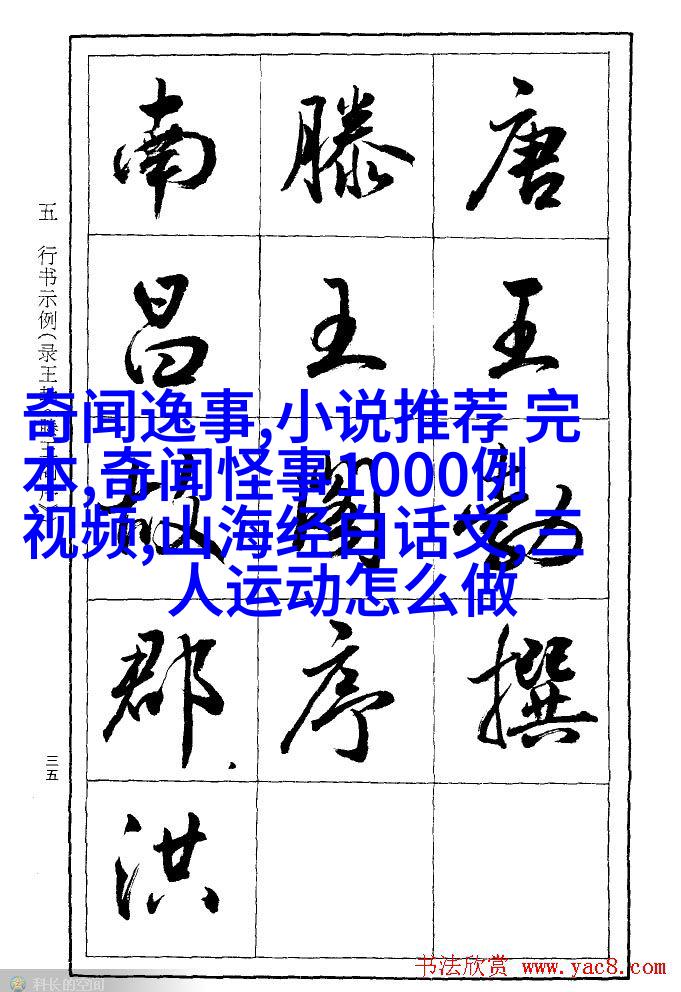 唐王勃撰
滕王阁序
南昌故郡.洪
五 行书示例(录王
三五
奇闻逸事,小说推荐 完
本,奇闻怪事1000例
视频,山海经白话文,三
人运动怎么做
书法欣赏 www.yac8.com
科长的空间